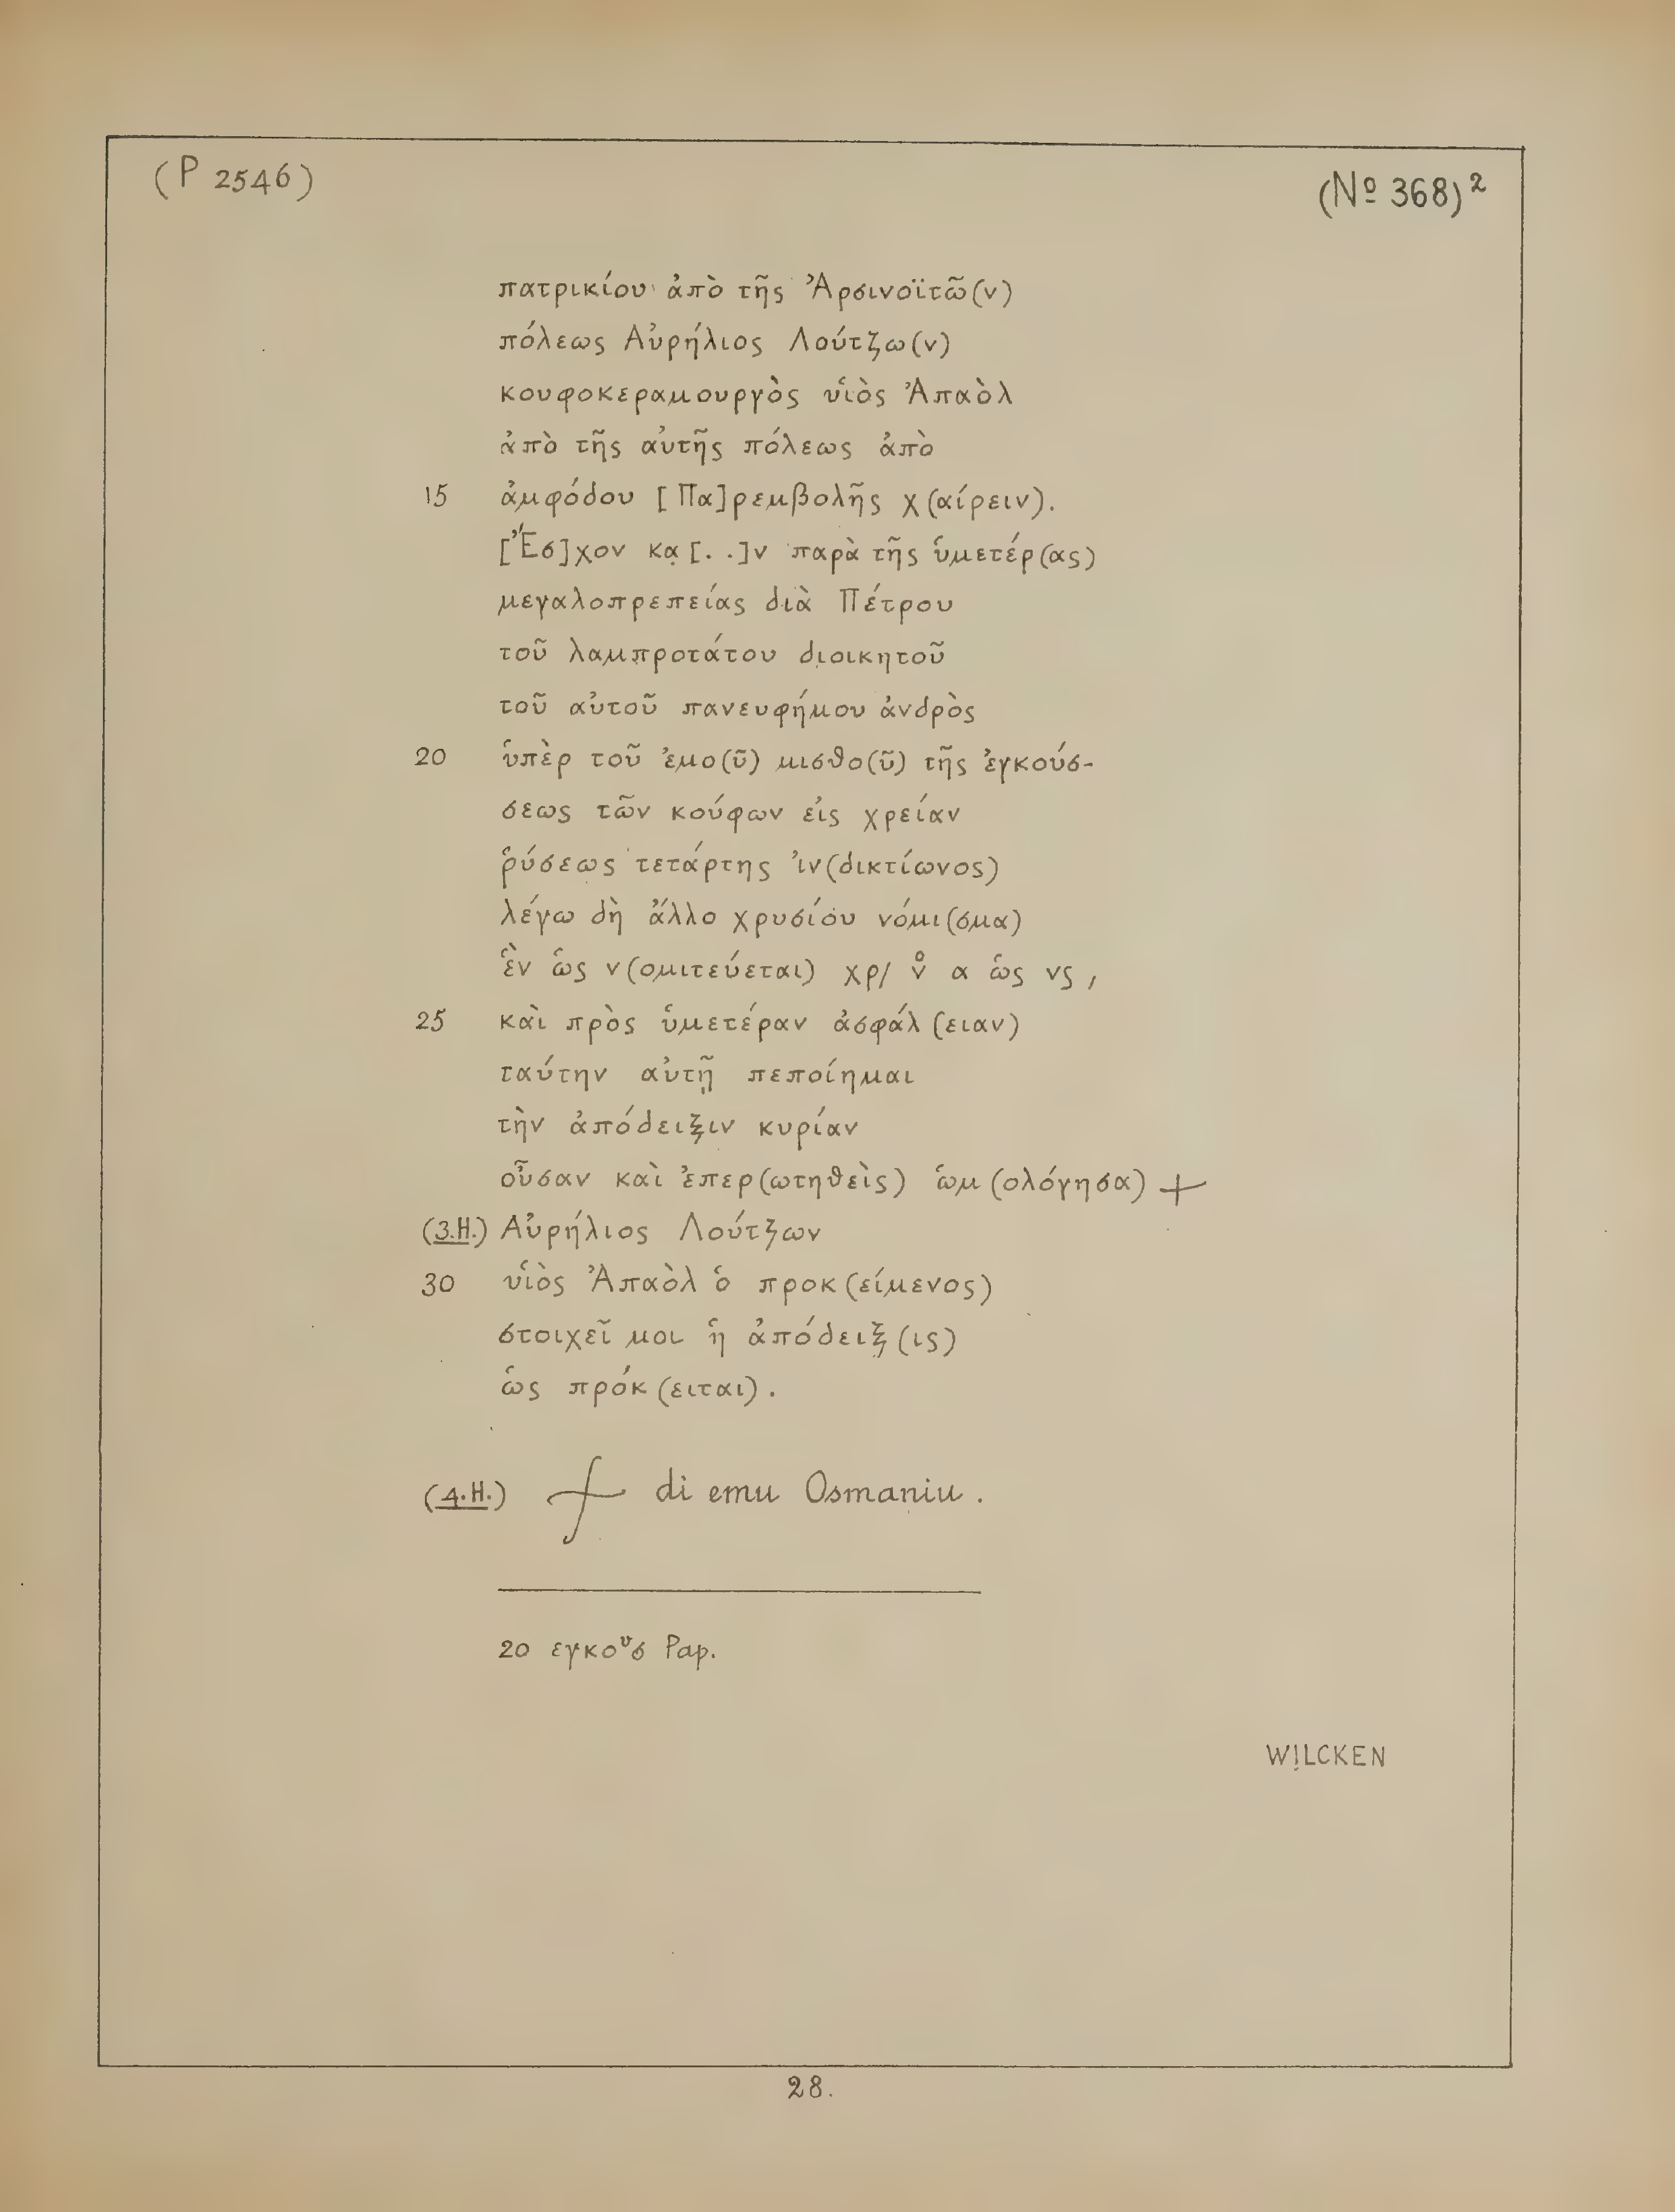 (P 2546)
(Nº 368)²
πατρικίου ἀπὸ τῆς Ἀρσινοϊτῶ(ν)
πόλεως Αὐρήλιος Λούτζω(ν)
κουφοκεραμουργὸς υἱὸς Ἀπαὸλ
ἀπὸ τῆς αὐτῆς πόλεως ἀπὸ
15 ἀμφόδου [Πα]ρεμβολῆς χ(αίρειν).
[Ἔσ]χον κα̣[..]ν παρὰ τῆς ὑμετέρ(ας)
μεγαλοπρεπείας διὰ Πέτρου
τοῦ λαμπροτάτου διοικητοῦ
τοῦ αὐτοῦ πανευφήμου ἀνδρὸς
20 ὑπὲρ τοῦ ἐμο(ῦ) μισθο(ῦ) τῆς ἐγκούσ-
σεως τῶν κούφων εἰς χρείαν
ῥύσεως τετάρτης ἰν(δικτίωνος)
λέγω δὴ ἄλλο χρυσίου νόμι(σμα)
ἓν ὡς ν(ομιτεύεται) χρ/ ν̊ α ὡς νς,
25 καὶ πρὸς ὑμετέραν ἀσφάλ(ειαν)
ταύτην αὐτῇ πεποίημαι
τὴν ἀπόδειξιν κυρίαν
οὖσαν καὶ ἐπερ(ωτηθεὶς) ὡμ(ολόγησα) +
(3.H.) Αὐρήλιος Λούτζων
30 υἱὸς Ἀπαὸλ ὁ προκ(είμενος)
στοιχεῖ μοι ἡ ἀπόδειξ(ις)
ὡς πρόκ(ειται).
(4.H.) + di emu Osmaniu.
20 εγκοᵛσ Pap.
WILCKEN
28.